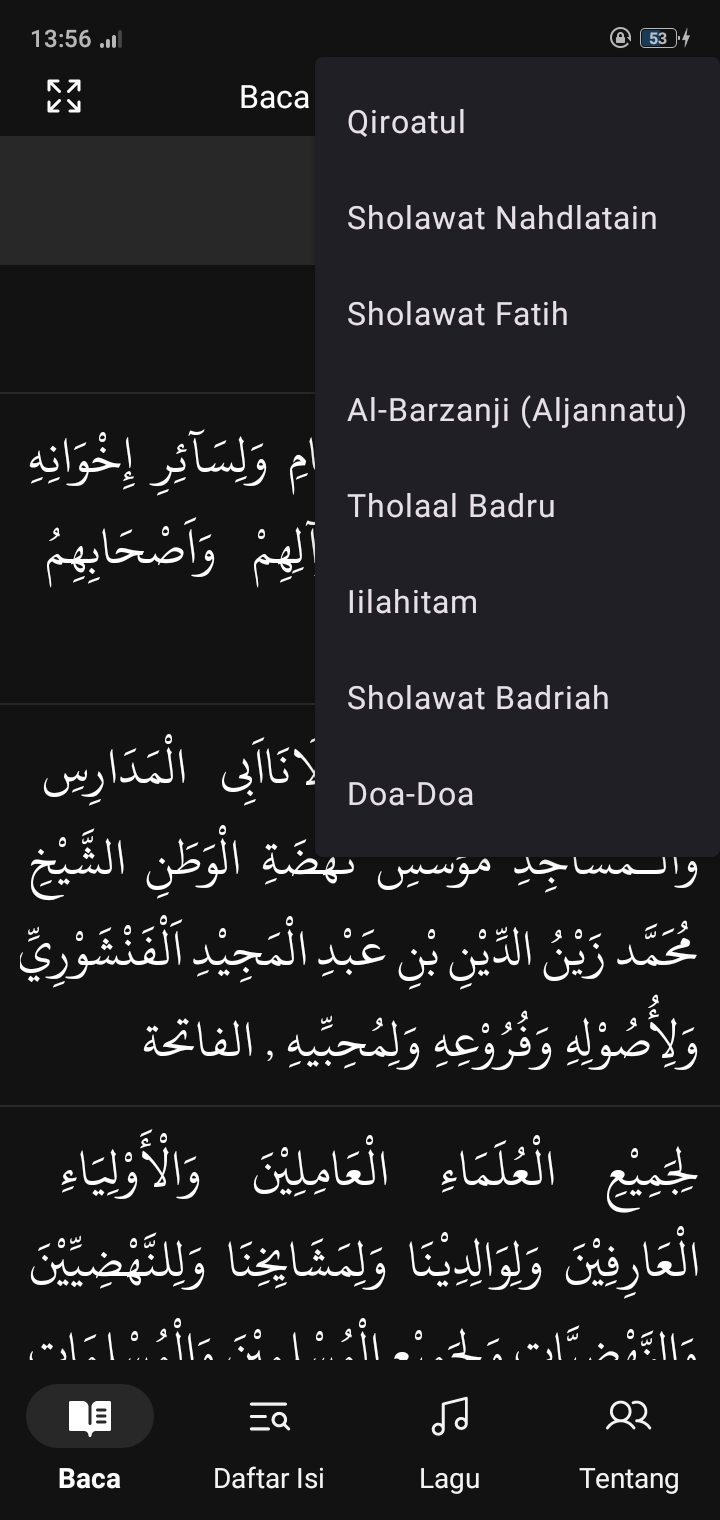 13:56
53
Baca
Qiroatul
Sholawat Nahdlatain
Sholawat Fatih
Al-Barzanji (Aljannatu)
Tholaal Badru
Iilahitam
Sholawat Badriah
Doa-Doa
وَلِسَآئِرِ إِخْوَانِهِ
وَاَصْحَابِهِمُ
الْمَدَارِسِ
وَالْـمَسَاجِدِ مُؤَسِّسِ نَهْضَةِ الْوَطَنِ الشَّيْخِ
مُحَمَّد زَيْنُ الدِّيْنِ بْنِ عَبْدِ الْمَجِيْدِ اَلْفَنْشَوْرِيِّ
وَلِأُصُوْلِهِ وَفُرُوْعِهِ وَلِمُحِبِّيهِ , الفاتحة
لِجَمِيْعِ الْعُلَمَاءِ الْعَامِلِيْنَ وَالْأَوْلِيَاءِ
الْعَارِفِيْنَ وَلِوَالِدِيْنَا وَلِمَشَايِخِنَا وَلِلنَّهْضِيِّيْنَ
وَالنَّهْضِيَّاتِ وَلِجَمِيْعِ الْمُسْلِمِيْنَ وَالْمُسْلِمَاتِ
Baca
Daftar Isi
Lagu
Tentang